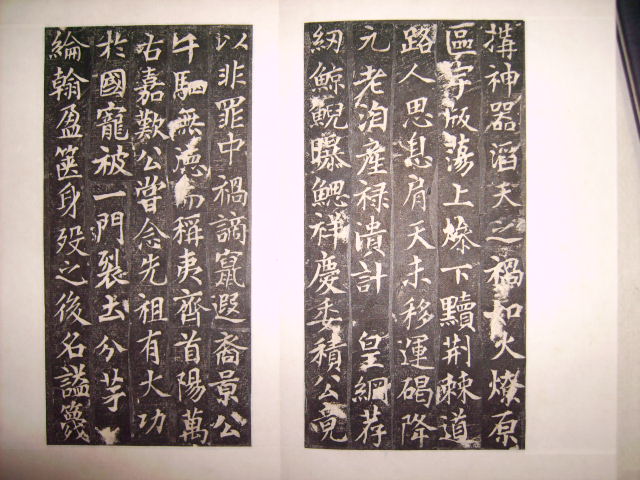 搆神器滔天之禍如火燎原
區宇版蕩上墋下黷荊棘道
路人思息肩天未移運碣降
元老洎產禄潰計 皇綱荐
紉鯨鯢曝鰓祥慶委積公竟
以非罪中禍謫竄遐裔景公
千駟無德而稱夷齊首陽萬
古嘉歎公嘗念先祖有大功
於國寵被一門裂土分茅
綸翰盈篋身歿之後名謚